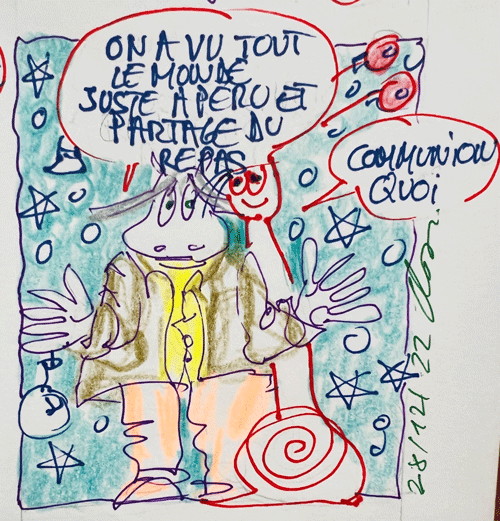 ON A VU TOUT
LE MONDE
JUSTE APERO ET
PARTAGE DU
REPAS
COMMUNION
QUOI
28/12/22